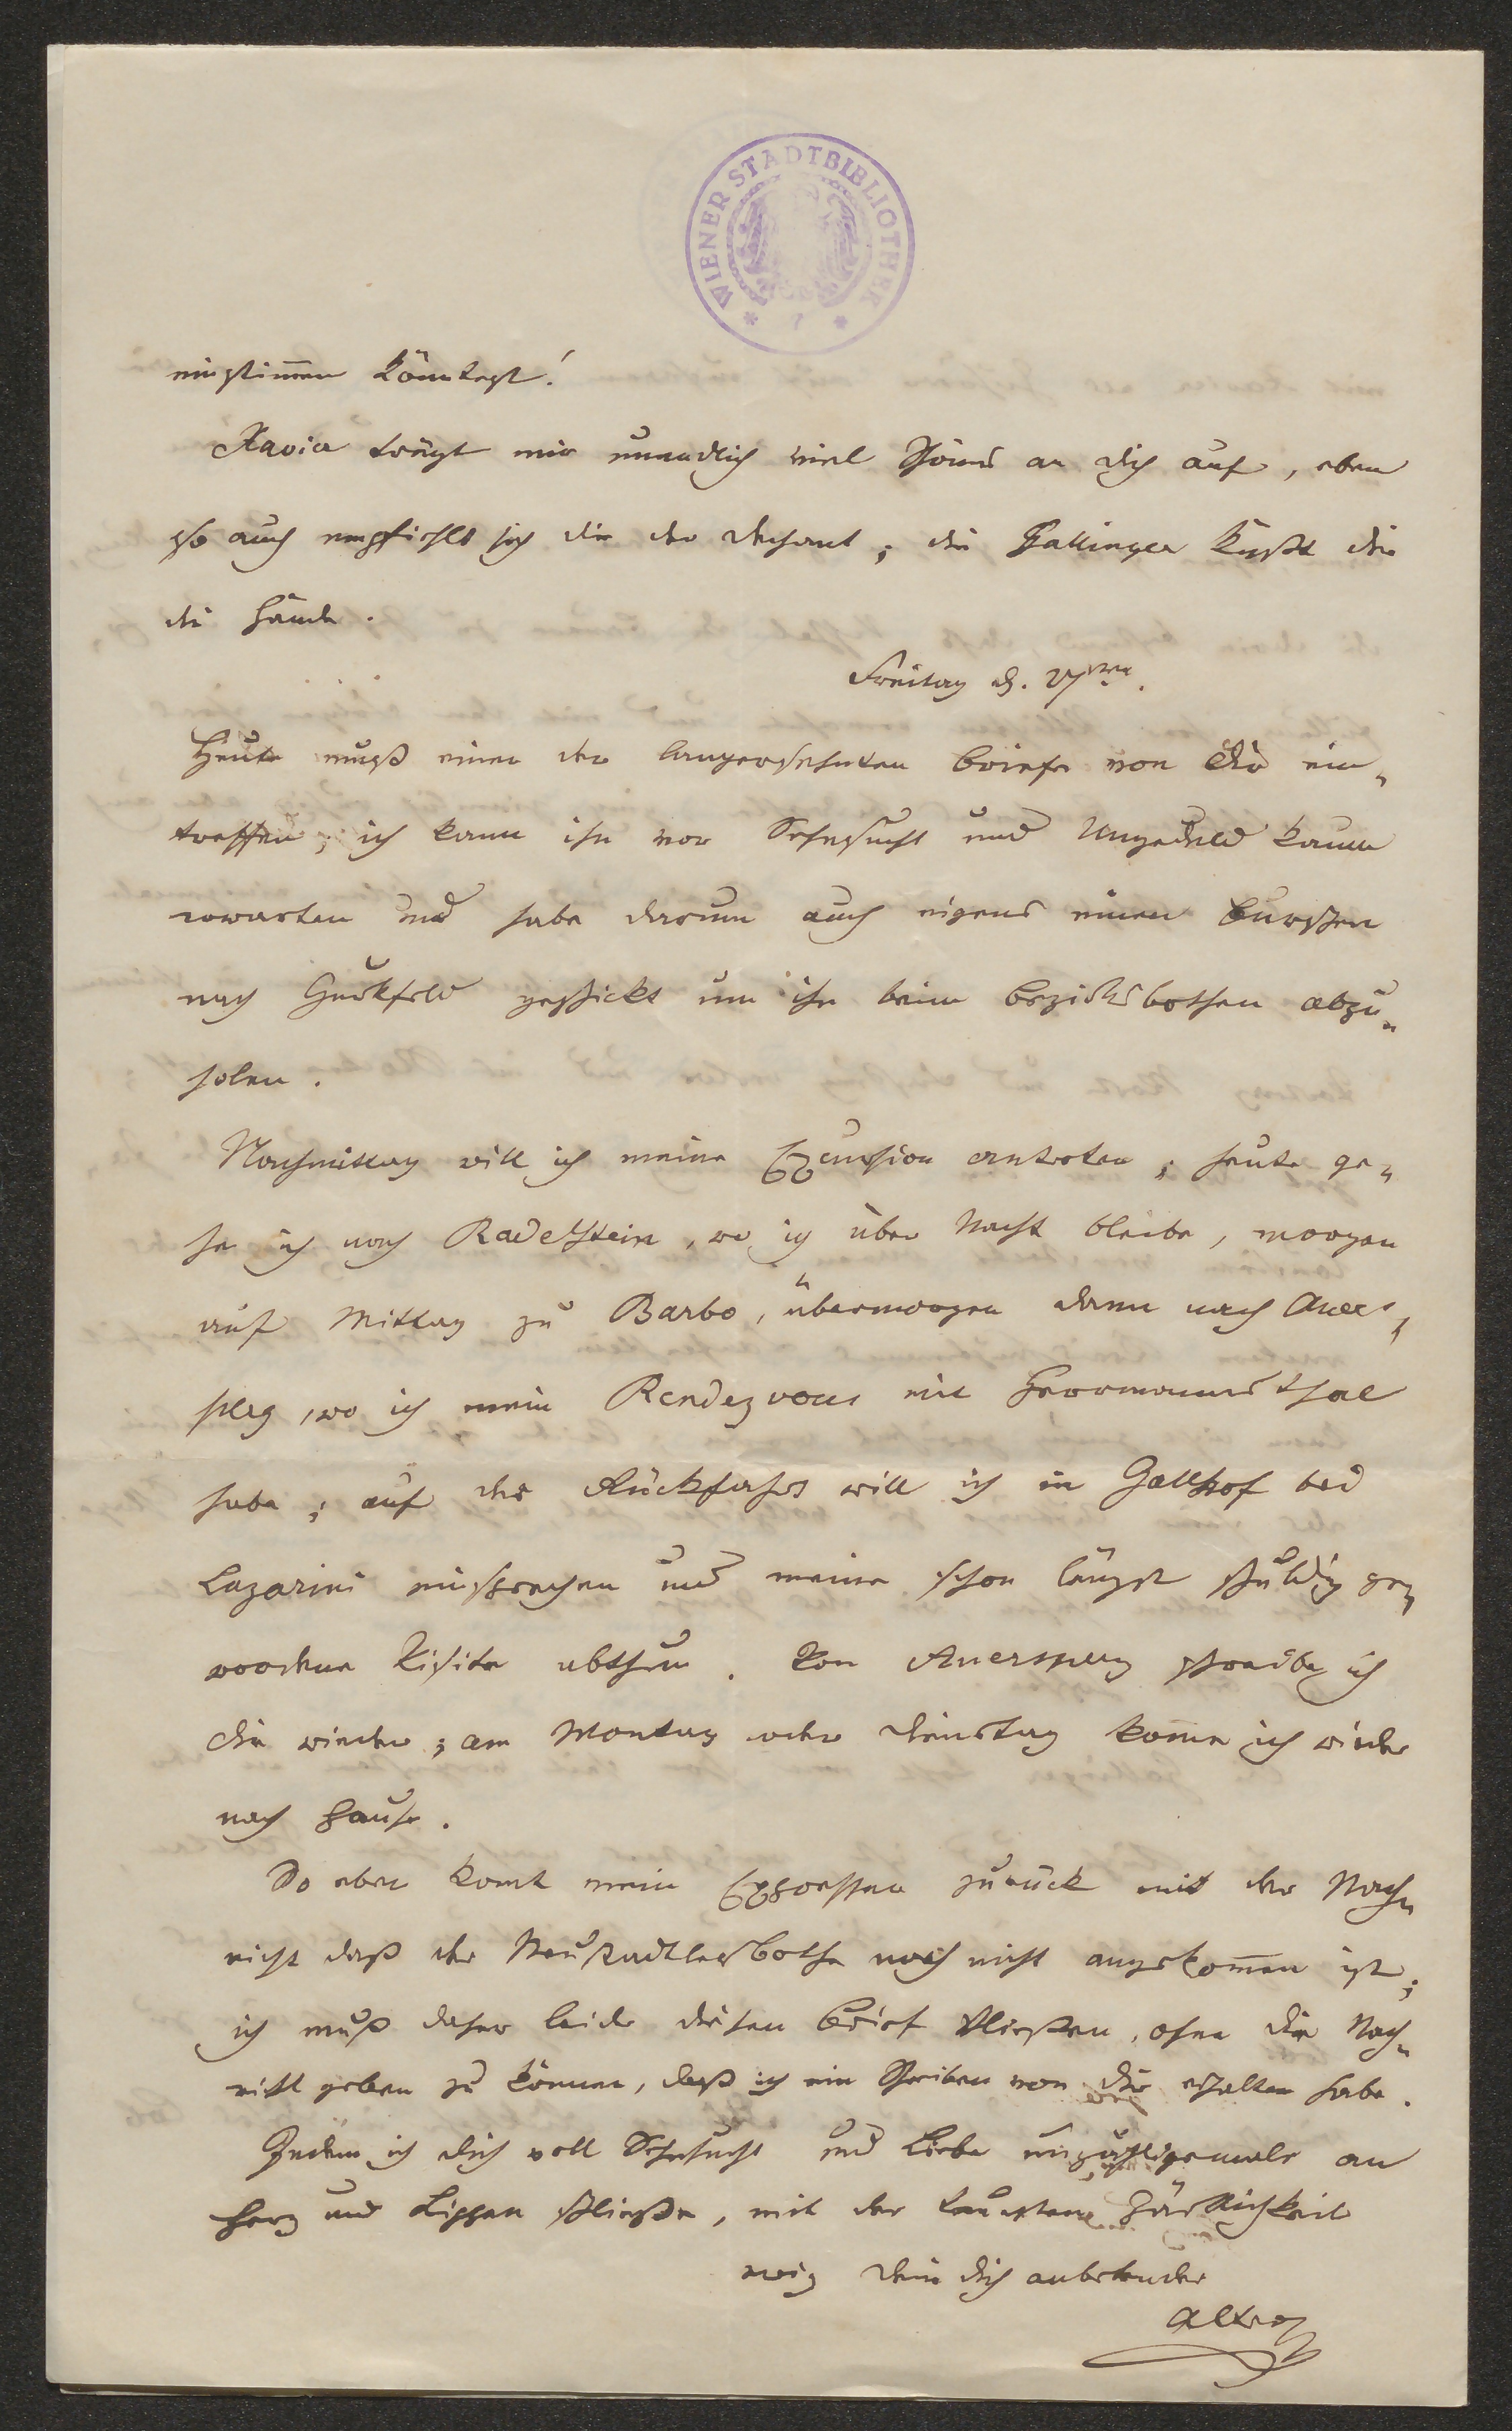 WIENER STADTBIBLIOTHEK
* 7 *
einstim̄en könntest!
Xavier trägt mir unendlich viel Schönes an dich auf, eben
so auch empfiehlt sich dir der Dechant, die Gallinger küßt dir
die Hände.
Freitag d. 27ten.
Heute muß einer der langersehnten Briefe von Dir ein„
treffen, ich kann ihn vor Sehnsucht und Ungeduld kaum
erwarten und habe darum auch eigens einen Burschen
nach Gurkfeld geschickt um ihn beim Bezirksbothen abzu„
holen.
Nachmittag will ich meine Excursion antreten; heute ge„
he ich nach Radelstein, wo ich über Nacht bleibe, morgen
auf Mittag zu Barbo, übermorgen dann nach Auers„
perg, wo ich mein Rendezvous mit Herrmannsthal
habe; auf der Rückfahrt will ich in Gallhof bei
Lazarini einsprechen und meine schon längst schuldig ge„
wordene Visite abthun. Von Auersperg schreibe ich
dir wieder; am Montag oder Dienstag kom̄e ich wieder
nach Hause.
So eben kom̄t mein Expresser zurück mit der Nach„
richt daß der Neustadtlerbothe noch nicht angekom̄en ist;
ich muß daher leider diesen Brief schließen, ohne dir Nach„
richt geben zu können, daß ich ein Schreiben von dir erhalten habe.
Indem ich dich voll Sehnsucht und Liebe unzähligemale an
Herz und Lippen schließe, mit der treuesten Zärtlichkeit
ewig dein dich anbetender